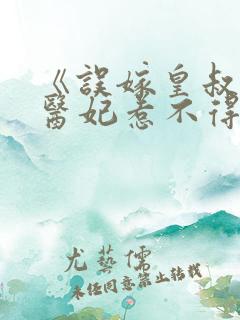 《誤嫁皇叔
醫妃惹不得
尤藝儒
未經同意禁止轉載